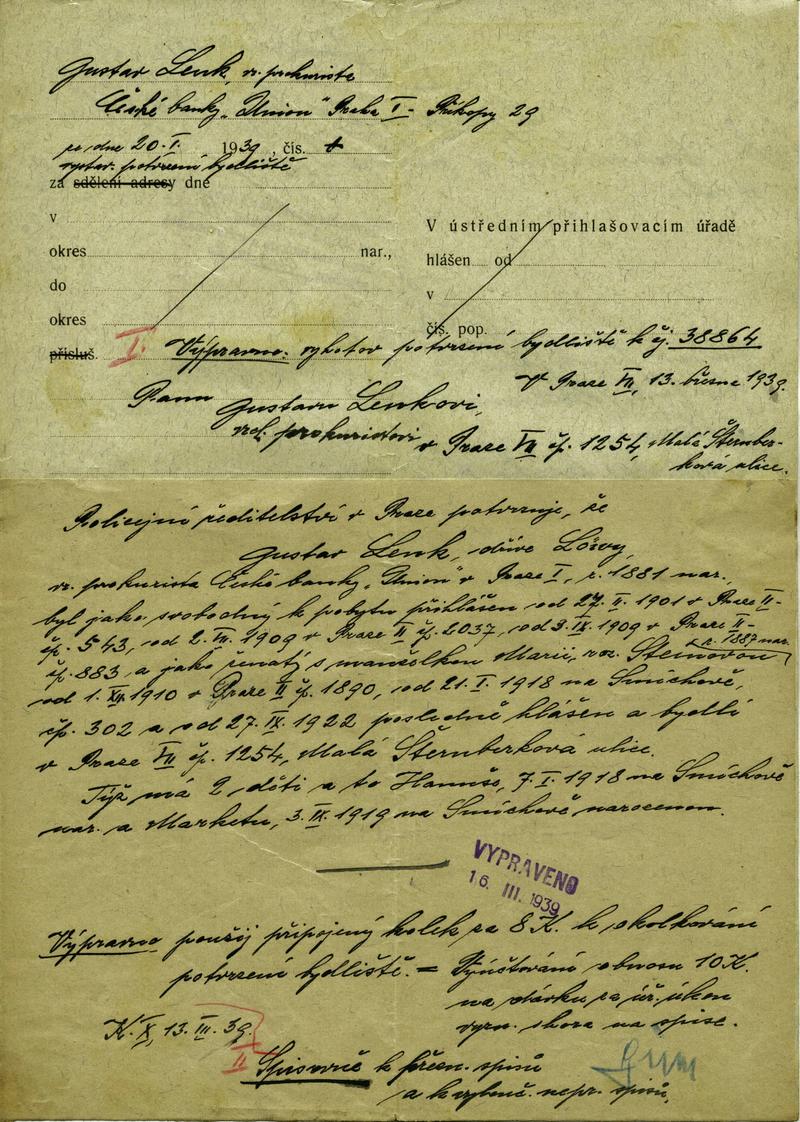 Gustav Lenk, vr. prokurista
České banky „Union“ Praha I - Příkopy 29
ze dne 20. I. 1939, čís. +
vystav. potvrzení bydliště
za sdělení adresy dne
v
okres nar.,
do
okres
přísluš.
V ústředním přihlašovacím úřadě
hlášen od
v
čís. pop.
I. Výpravna: vyhotov potvrzení bydliště k čj. 38864
V Praze VII, 13. března 1939.
Panu Gustavu Lenkovi,
vrch. prokuristovi
v Praze VII čp. 1254, Malá Šternber-
ková ulice.
Policejní ředitelství v Praze potvrzuje, že
Gustav Lenk, dříve Löwy,
vr. prokurista České banky „Union“ v Praze I, r. 1881 nar.,
byl jako svobodný k pobytu přihlášen od 27. II. 1901 v Praze II-
čp. 543, od 2. VII. 1909 v Praze II čp. 2037, od 3. IX. 1909 v Praze II-
čp. 883 a jako ženatý s manželkou Marií, roz. Steinovou r. 1887 nar.
od 1. XII. 1910 v Praze II čp. 1890, od 21. I. 1918 na Smíchově,
čp. 302 a od 27. IX. 1922 posledně hlášen a bydlí
v Praze VII čp. 1254, Malá Šternberková ulice.
Týž má 2 děti a to Hanuše, 7. I. 1918 na Smíchově
nar. a Markétu, 3. IX. 1919 na Smíchově narozenou.
VYPRAVENO
16. III. 1939
Výpravna použij připojený kolek za 8 K. k okolkování
potvrzení bydliště. = Vyúčtování obnosu 10 K.
na dávku za úř. úkon
vyzn. shora na spise.
K. X, 13. III. 39.
II Spisovně k přezn. spisů
a k vyhled. nepr. spisů.